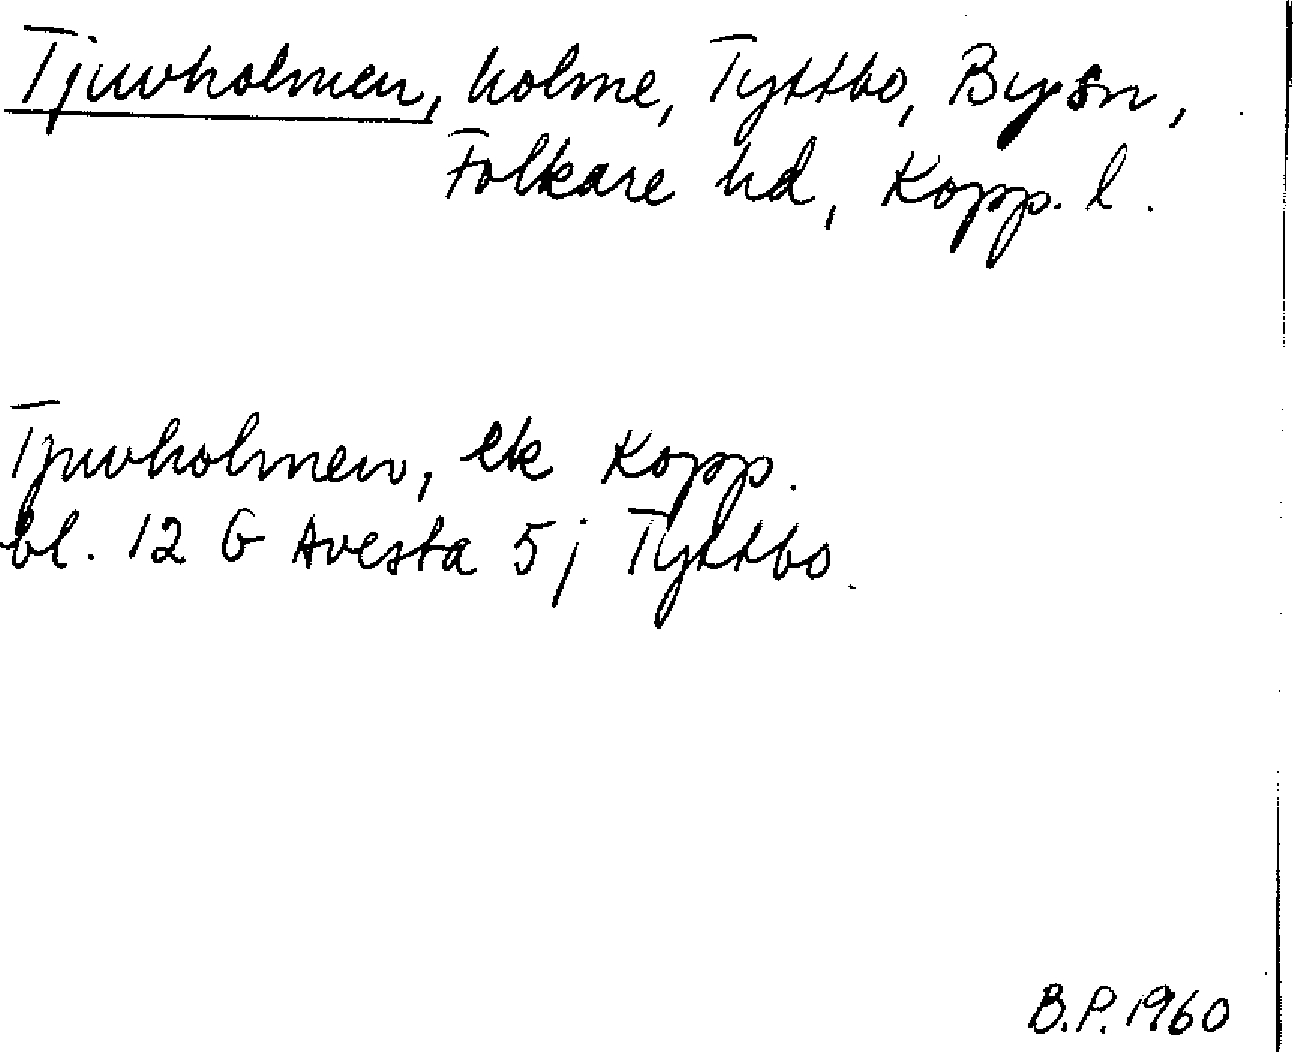 Tjuvholmen, holme, Tyttbo, By sn,
Folkare hd, Kopp. l.
Tjuvholmen, ek Kopp.
bl. 12 G Avesta 5j Tyttbo.
B.P. 1960